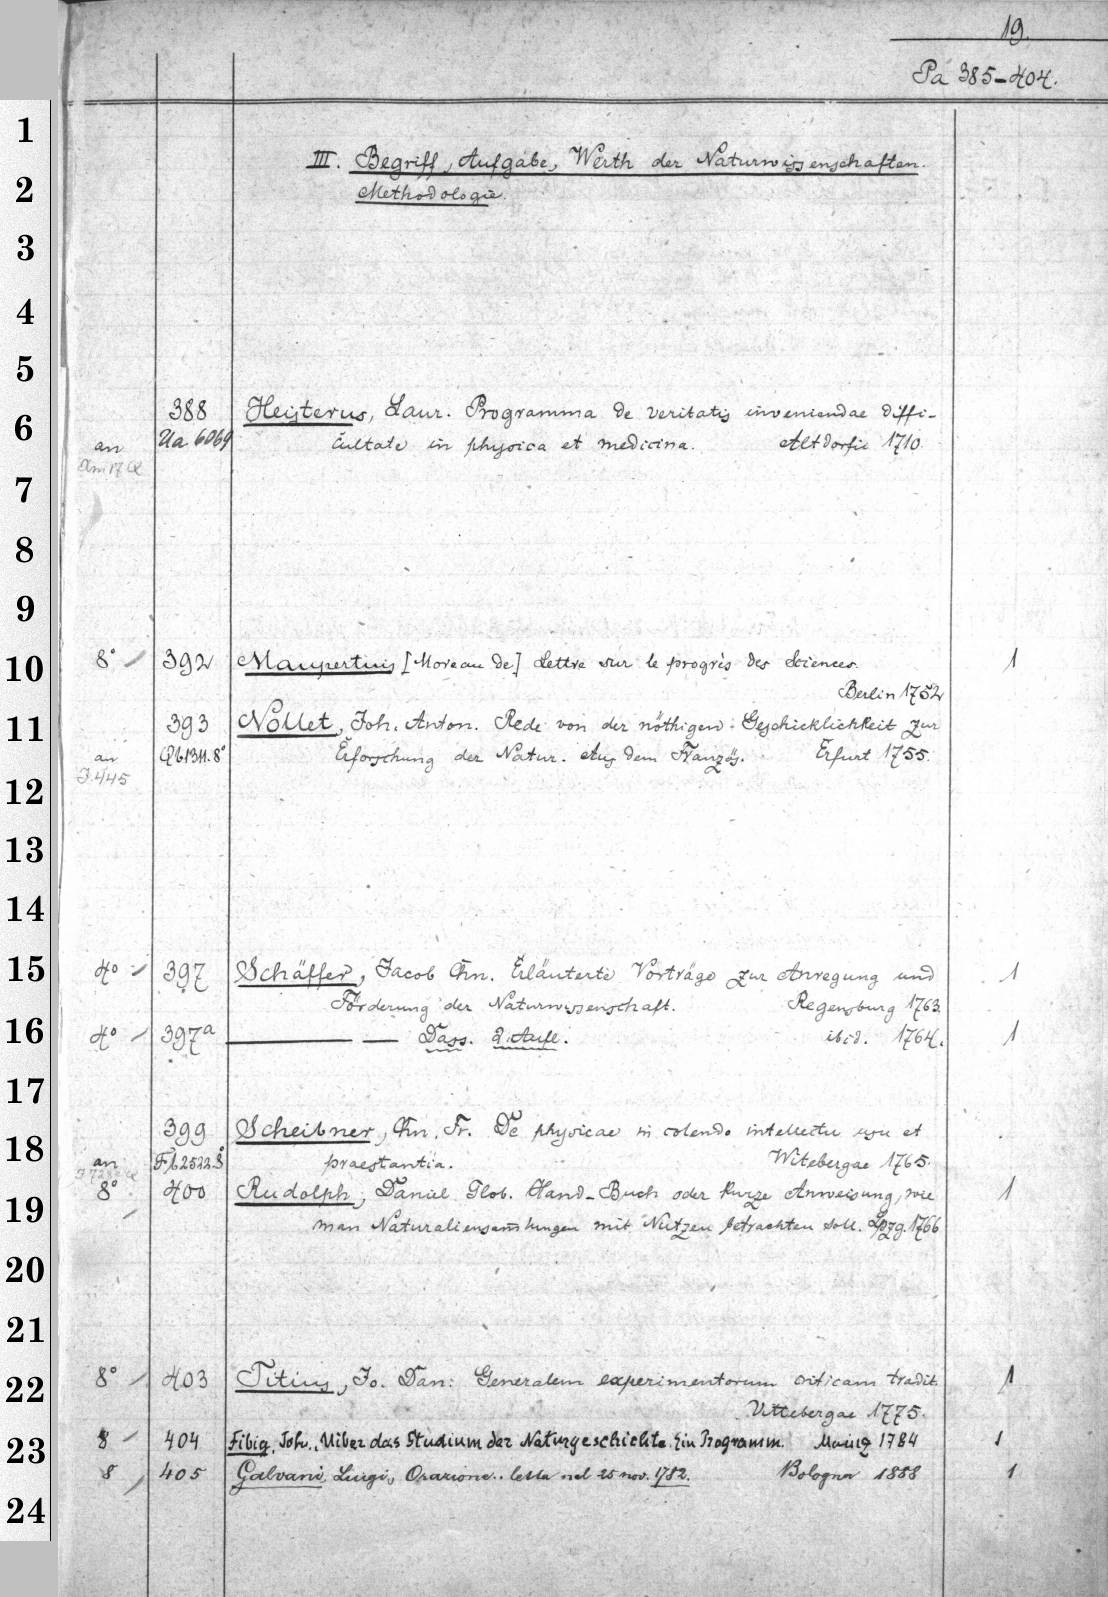 19.
Pa 385-404.
1
III. Begriff, Aufgabe, Werth der Naturwissenschaften.
2
Methodologie.
3
4
5
388 Heisterus, Laur. Programma de veritatis inveniendae diffi-
6
an Ua 6069 cultate in physica et medicina. Altdorfii 1710.
7
8
9
8° 392 Maupertuis [Moreau de] Lettre sur le progrès des Sciences. 1
10
Berlin 1752
393 Nollet, Joh. Anton. Rede von der nöthigen Geschicklichkeit zur
11
an Qb1311.8° Erforschung der Natur. Aus dem Französ. Erfurt 1755.
J.445
12
13
14
4° 397 Schäffer, Jacob Chn. Erläuterte Vorträge zur Anregung und 1
15
Förderung der Naturwissenschaft. Regensburg 1763.
16
4° 397a — — Dass. 2. Aufl. ibid. 1764. 1
17
399 Scheibner, Chn. Fr. De physicae in colendo intellectu usu et
18
an praestantia. Witebergae 1765.
8° 400 Rudolph, Daniel Glob. Hand-Buch oder kurze Anweisung, wie 1
19
man Naturaliensammlungen mit Nutzen betrachten soll. Lpzg. 1766
20
21
8° 403 Titius, Jo. Dan: Generalem experimentorum criticam tradit. 1
22
Vittebergae 1775.
8 404 Fibig, Joh., Uiber das Studium der Naturgeschichte. Ein Programm. Mainz 1784 1
23
8 405 Galvani, Luigi, Orazione.. letta nel 25 nov. 1782. Bologna 1888 1
24